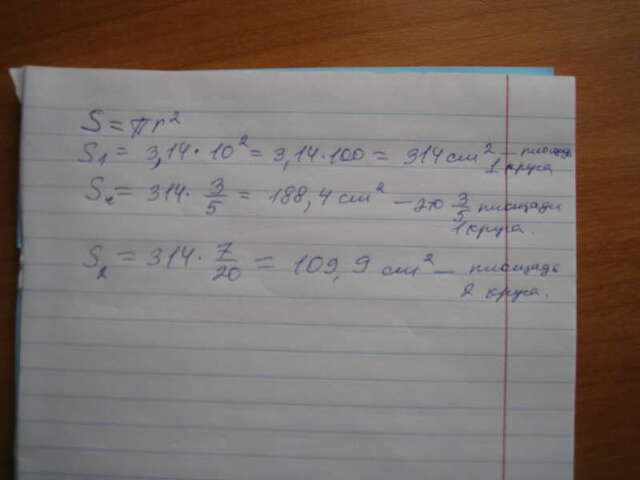 S = πr²
S₁ = 3,14 · 10² = 3,14 · 100 = 314 см² – площадь
1 круга
S₂ = 314 · 3/5 = 188,4 см² – это 3/5 площади
1 круга.
S₂ = 314 · 7/20 = 109,9 см² – площадь
2 круга.